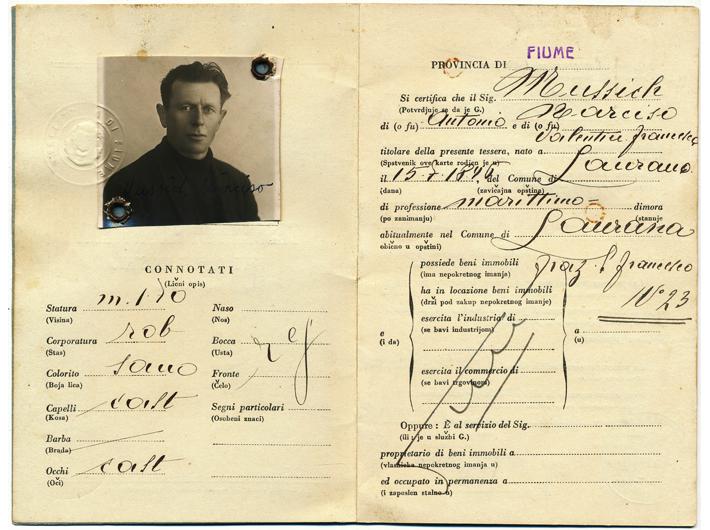 DI FIUME
CONNOTATI
(Lični opis)
Statura m. 1.70
(Visina)
Corporatura rob
(Stas)
Colorito sano
(Boja lica)
Capelli cast
(Kosa)
Barba
(Brada)
Occhi cast
(Oči)
Naso
(Nos)
Bocca reg
(Usta)
Fronte
(Čelo)
Segni particolari
(Osobeni znaci)
FIUME
PROVINCIA DI
Si certifica che il Sig. Mussich
(Potvrdjuje se da je G.) Narciso
di (o fu) Antonio e di (o fu)
Valentin Francesca
titolare della presente tessera, nato a
(Spatvenik ove karte rodjen je u) Laurana
il 15-8-1896, del Comune di
(dana) (zavičajna opština)
di professione marittimo = dimora
(po zanimanju) (stanuje
abitualmente nel Comune di Laurana
obično u opštini)
possiede beni immobili fraz S francesco
(ima nepokretnog imanja)
ha in locazione beni immobili Nº 23
(drži pod zakup nepokretnog imanja)
esercita l'industria di
(se bavi industrijom)
e a
(i da) (u)
esercita il commercio di
(se bavi trgovinom)
Oppure : È al servizio del Sig.
(ili : je u službi G.)
proprietario di beni immobili a
(vlasnika nepokretnog imanja u)
ed occupato in permanenza a
(i zaposlen stalno u)